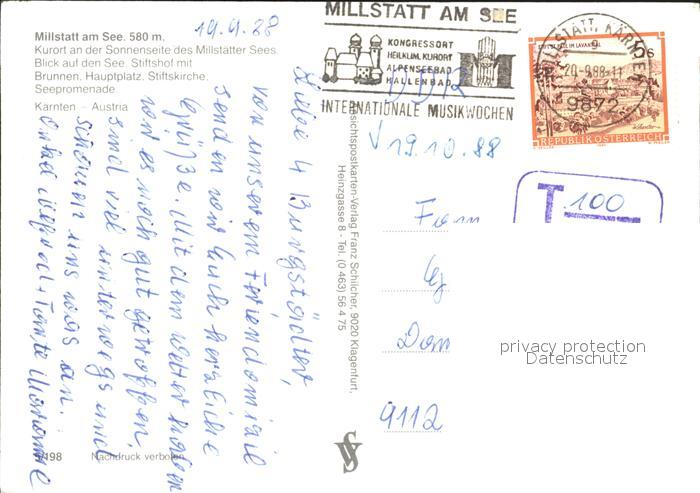 Millstatt am See. 580 m.
Kurort an der Sonnenseite des Millstätter Sees.
Blick auf den See. Stiftshof mit
Brunnen. Hauptplatz. Stiftskirche.
Seepromenade
Kärnten – Austria
19.9.88
Liebe 4 Bungstädter,
von unserem Feriendomizil
senden wir Euch herzliche
Grüße. Mit dem Wetter haben
wir es noch gut getroffen,
sind viel unterwegs und
schauen uns was an.
Onkel Helmut + Tante Marianne
5/198
Nachdruck verboten
Ansichtspostkarten-Verlag Franz Schilcher, 9020 Klagenfurt,
Heinzgasse 8 - Tel. (0 463) 56 4 75
MILLSTATT AM SEE
KONGRESSORT
HEILKLIM. KURORT
ALPENSEEBAD
HALLENBAD
INTERNATIONALE MUSIKWOCHEN
DDR
MILLSTATT, KÄRNTEN
20.-9.88-11
9872
S 6
REPUBLIK ÖSTERREICH
19.10.88
T 100
Fam
Dom
9112
privacy protection
Datenschutz